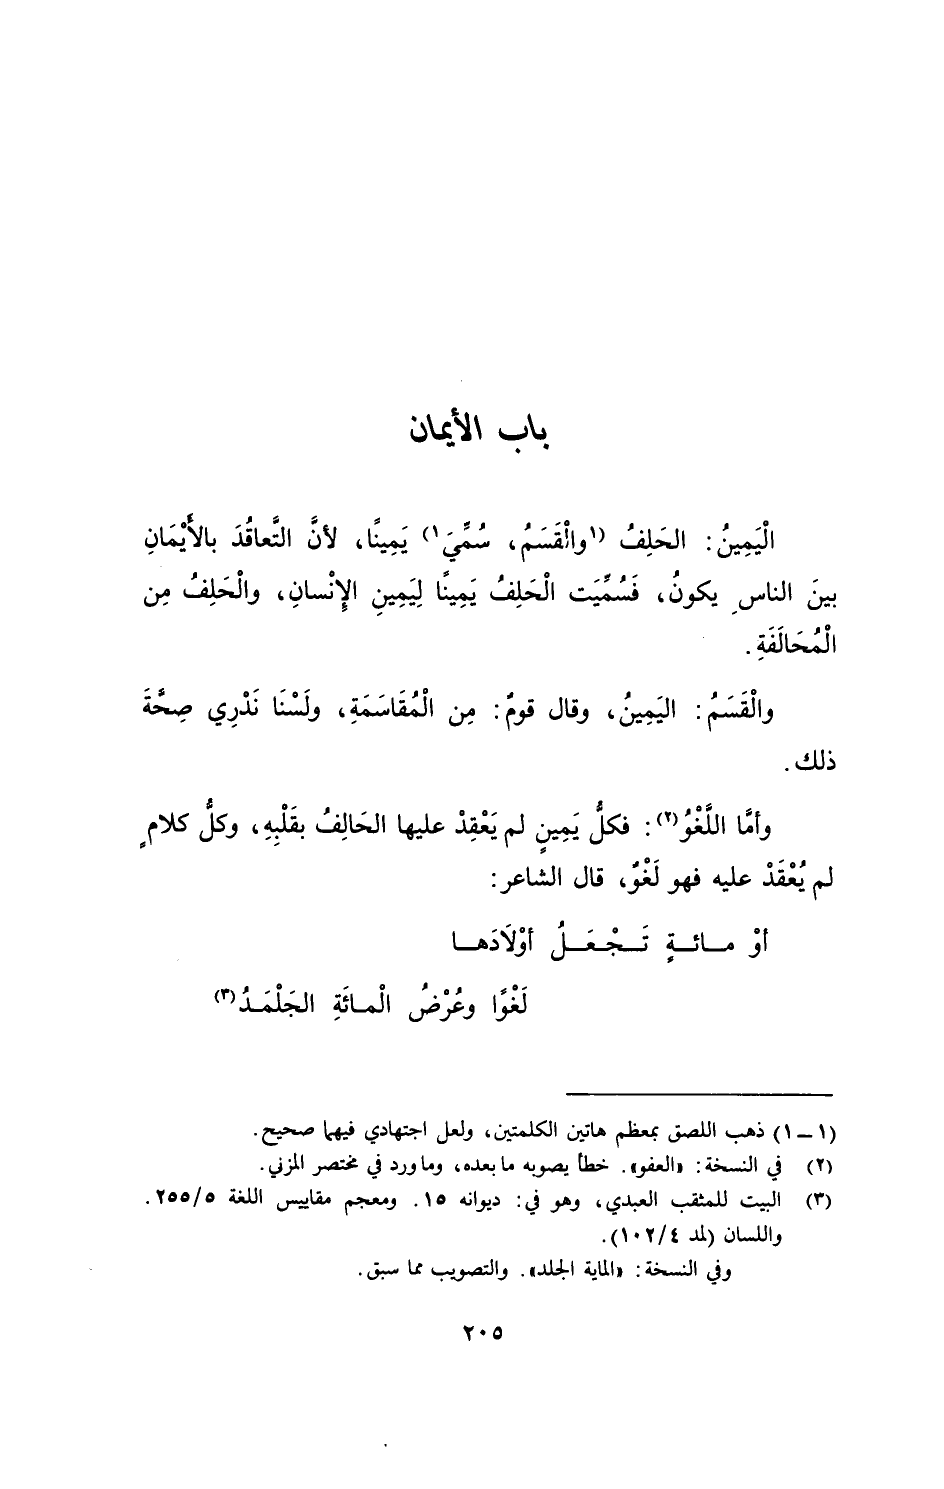 باب الأيمان
الْيَمِينُ: الحَلِفُ (١والْقَسَمُ، سُمِّيَ١) يَمِينًا، لأنَّ التَّعاقُدَ بالأَيْمَانِ
بينَ الناسِ يكونُ، فَسُمِّيَت الْحَلِفُ يَمِينًا لِيَمِينِ الإِنْسانِ، والْحَلِفُ مِن
الْمُحَالَفَةِ.
والْقَسَمُ: اليَمِينُ، وقال قومٌ: مِن الْمُقَاسَمَةِ، ولَسْنَا نَدْرِي صِحَّةَ
ذلك.
وأمَّا اللَّغْوُ(٢): فكلُّ يَمِينٍ لم يَعْقِدْ عليها الحَالِفُ بقَلْبِهِ، وكلُّ كلامٍ
لم يُعْقَدْ عليه فهو لَغْوٌ، قال الشاعر:
أوْ مـائـةٍ تَـجْـعَـلُ أوْلَادَهـا
لَغْوًا وعُرْضُ الْمـائَةِ الجَلْمَـدُ(٣)
(١ – ١) ذهب اللصق بمعظم هاتين الكلمتين، ولعل اجتهادي فيهما صحيح.
(٢) في النسخة: «العفو». خطأ يصوبه ما بعده، وما ورد في مختصر المزني.
(٣) البيت للمثقب العبدي، وهو في: ديوانه ١٥. ومعجم مقاييس اللغة ٢٥٥/٥.
واللسان (لمد ١٠٢/٤).
وفي النسخة: «الماية الجلد». والتصويب مما سبق.
٢٠٥